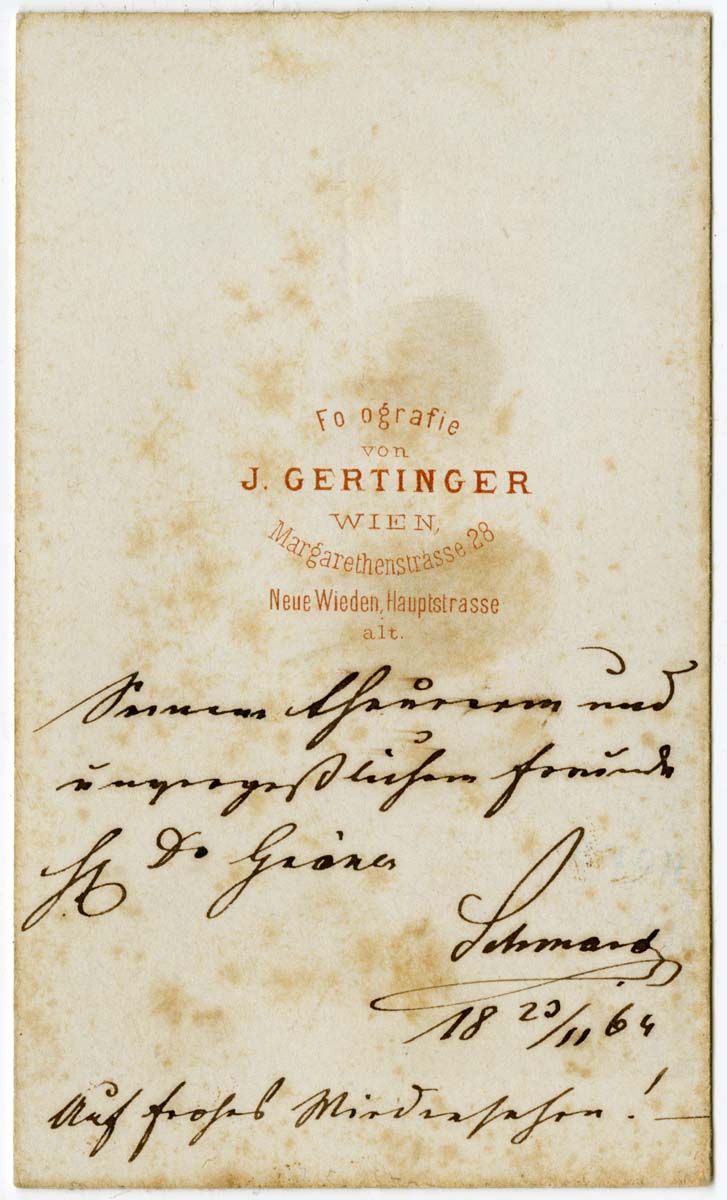 Fo ografie
von
J. GERTINGER
WIEN,
Margarethenstrasse 28
Neue Wieden, Hauptstrasse
alt.
Seinem theuren und
unvergeßlichen Freunde
Dr
18 23/11 64
Auf frohes Wiedersehen! —